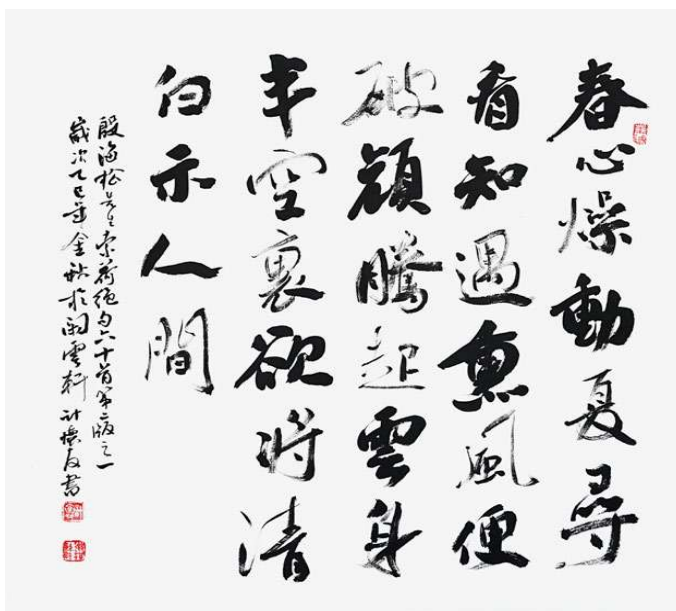 春心燥動夏尋
看知遇熏風便
破顏騰起雲身
半空裏欲将清
白示人間
殷海松先生索荷絕句六十首第版之一
歲次乙巳年金秋於雲軒計懷友書